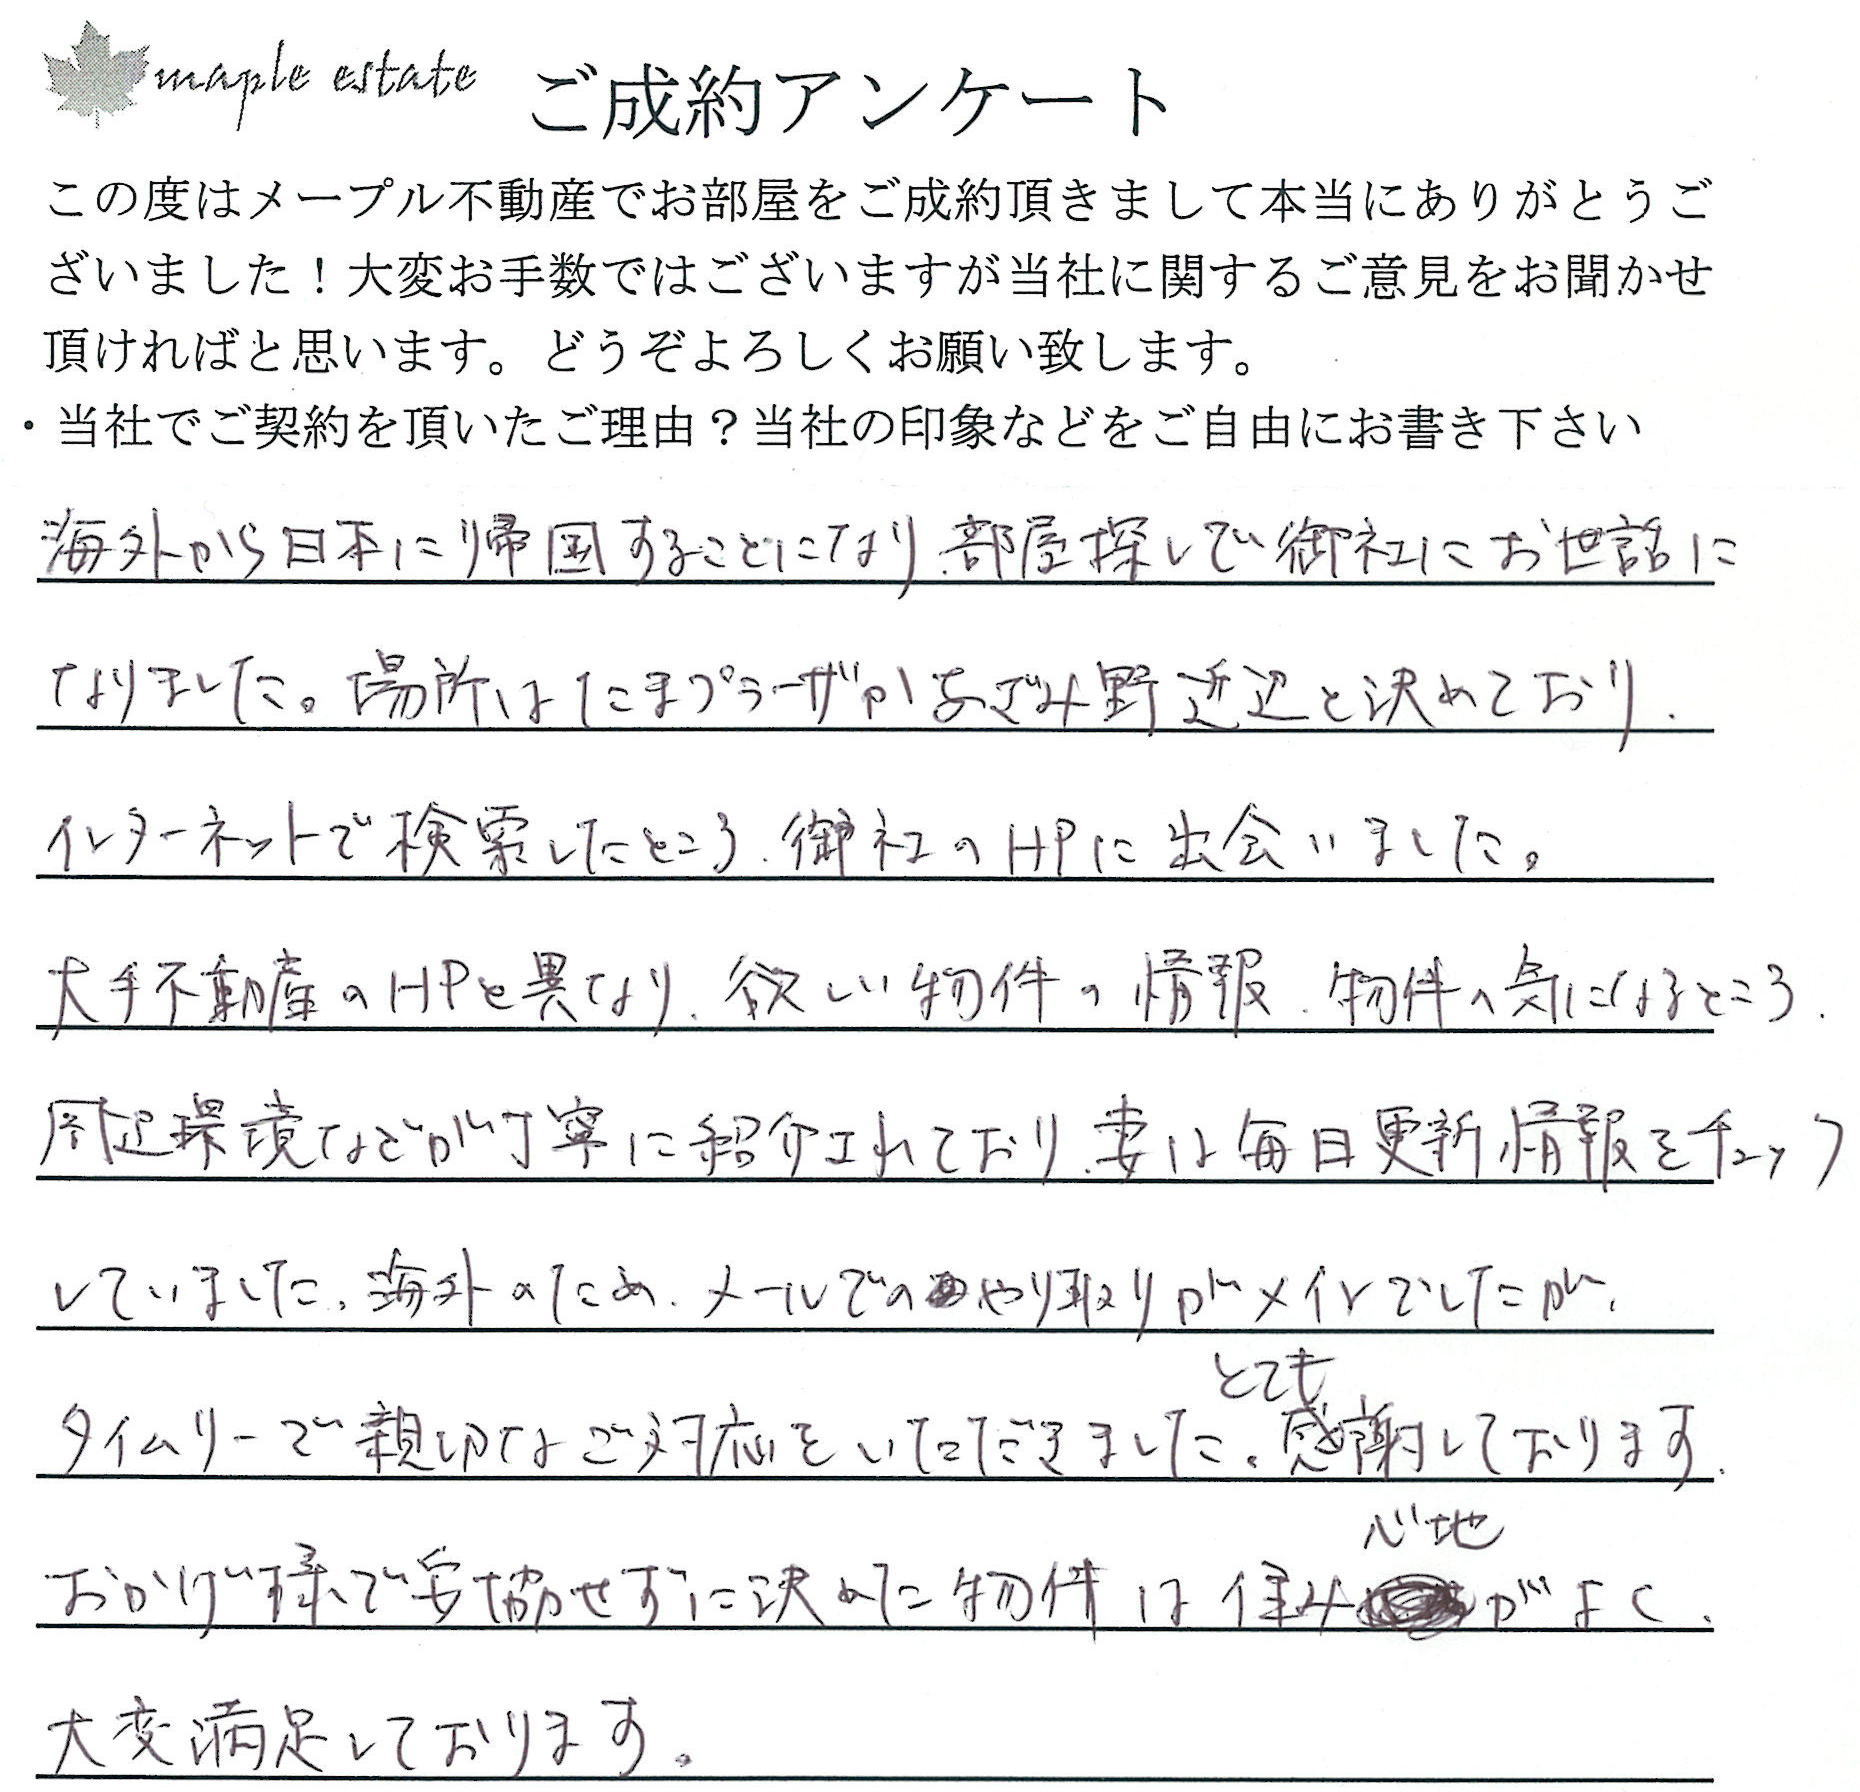 maple estate ご成約アンケート
この度はメープル不動産でお部屋をご成約頂きまして本当にありがとうご
ざいました！大変お手数ではございますが当社に関するご意見をお聞かせ
頂ければと思います。どうぞよろしくお願い致します。
・当社でご契約を頂いたご理由？当社の印象などをご自由にお書き下さい
海外から日本に帰国することになり、部屋探しで御社にお世話に
なりました。場所はたまプラーザかあざみ野近辺と決めており、
インターネットで検索したところ、御社のHPに出会いました。
大手不動産のHPと異なり、欲しい物件の情報、物件の気になるところ、
周辺環境などが丁寧に紹介されており、妻は毎日更新情報をチェック
していました。海外のため、メールでのやり取りがメインでしたが、
タイムリーで親切なご対応をいただきました。とても感謝しております。
おかげ様で妥協せずに決めた物件は住み心地がよく、
大変満足しております。